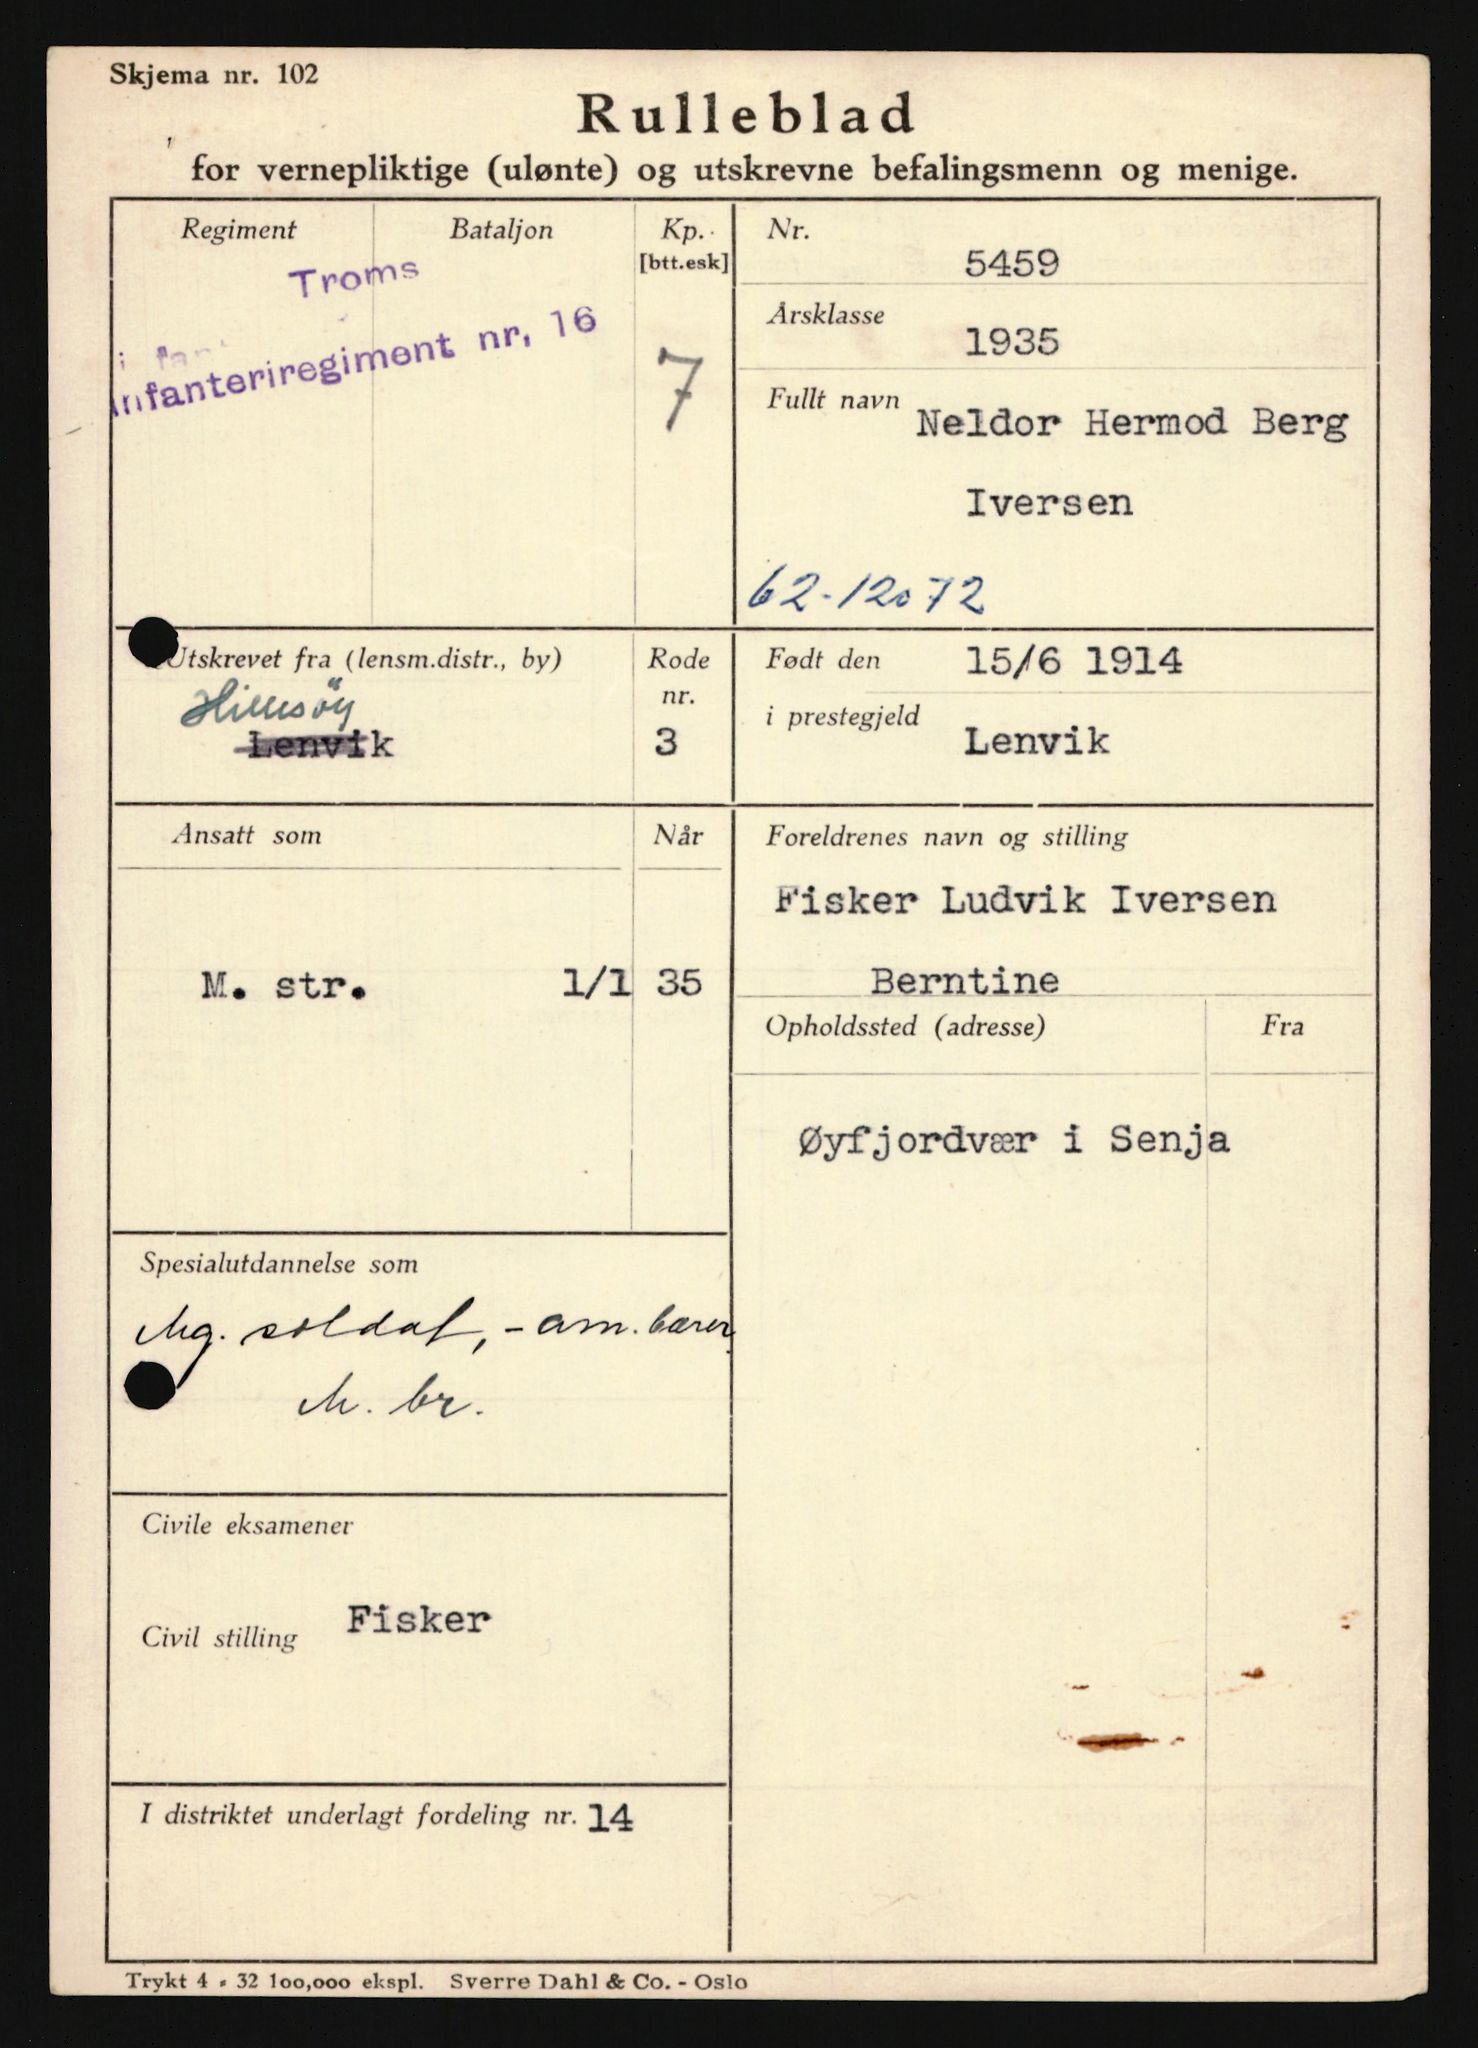 Skjema nr. 102
Rulleblad
for vernepliktige (ulønte) og utskrevne befalingsmenn og menige.
Regiment
Bataljon
Kp.
[btt.esk]
Troms
Infanteriregiment nr. 16
7
Nr.
5459
Årsklasse
1935
Fullt navn
Neldor Hermod Berg
Iversen
62-12072
Utskrevet fra (lensm.distr., by)
Hillesöy
Lenvik
Rode
nr.
3
Født den
15/6 1914
i prestegjeld
Lenvik
Ansatt som
Når
M. str.
1/1 35
Foreldrenes navn og stilling
Fisker Ludvik Iversen
Berntine
Opholdssted (adresse)
Fra
Øyfjordvær i Senja
Spesialutdannelse som
Mg. soldat, - am. bærer
M. br.
Civile eksamener
Civil stilling
Fisker
I distriktet underlagt fordeling nr. 14
Trykt 4 - 32 100,000 ekspl. Sverre Dahl & Co. - Oslo